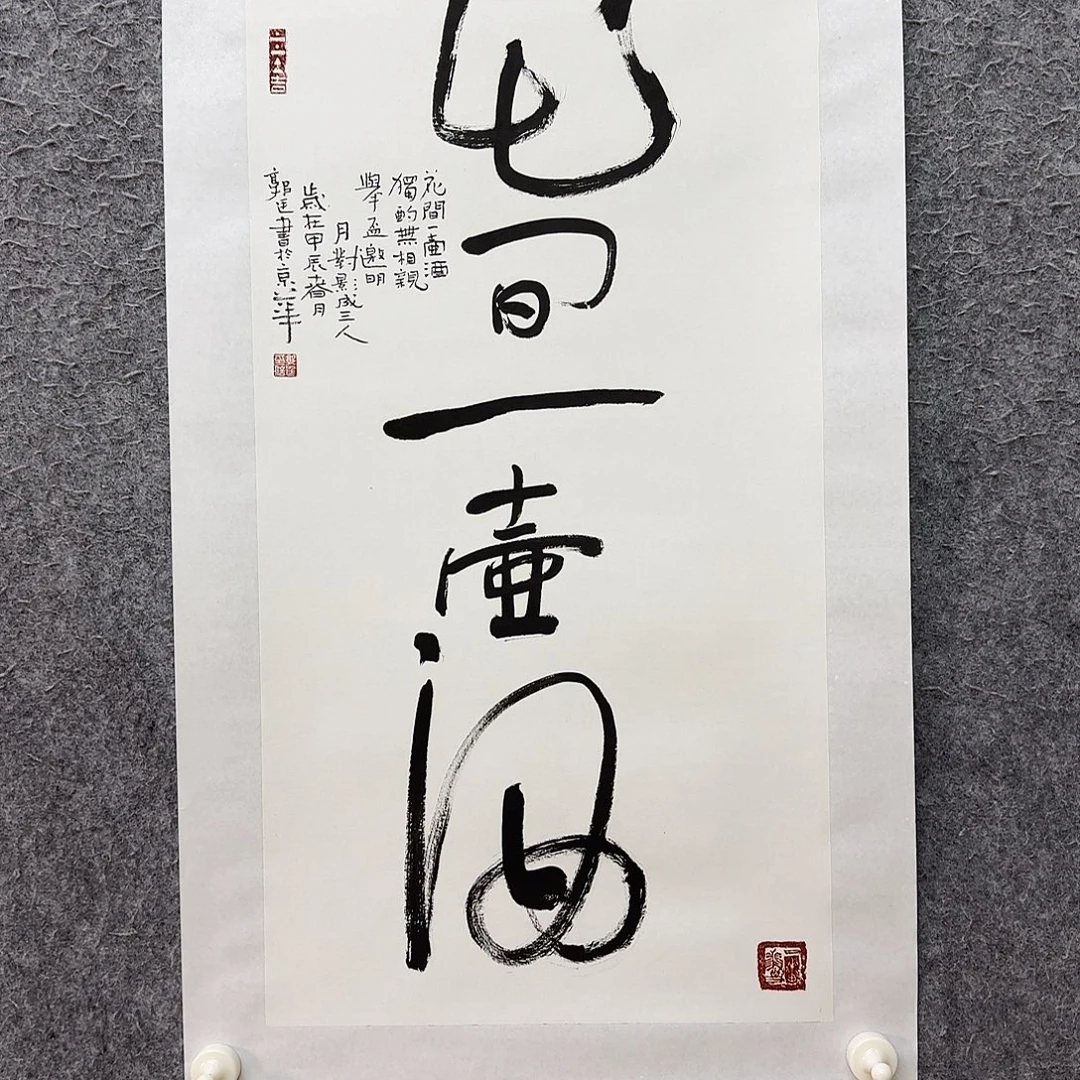 花間一壶酒
花間一壺酒
獨酌無相親
舉盃邀明
月對影成三人
歲在甲辰春月
郭廷書於京華